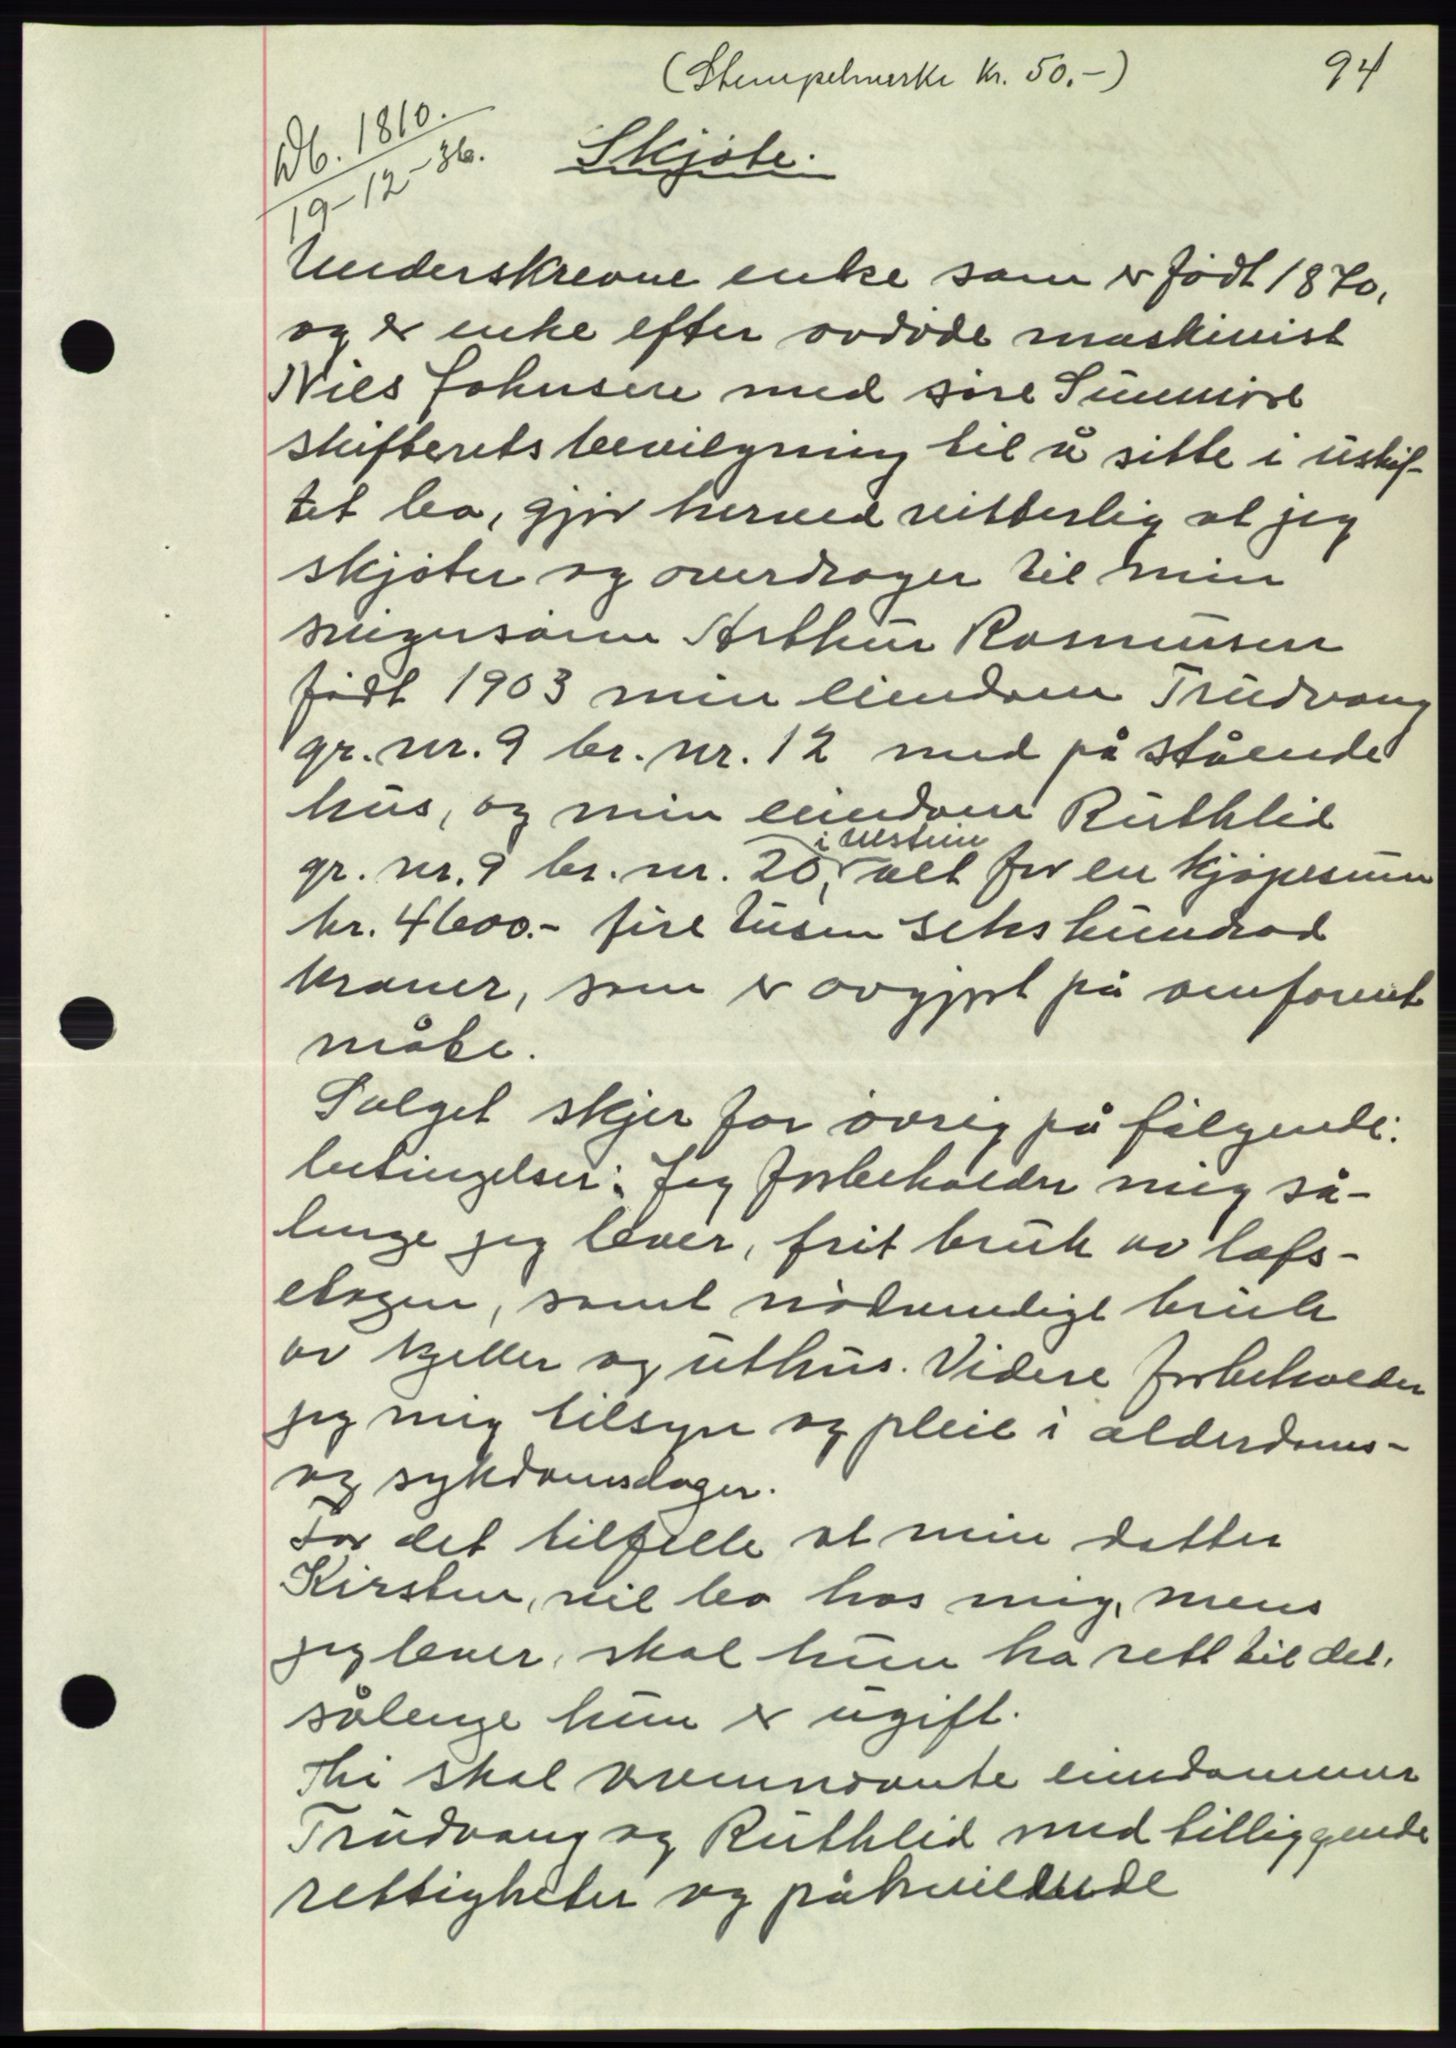 (Stempelmerke kr. 50.-)
94
Db. 1810.
19-12-36.
Skjøte.
Underskrevne enke som er født 1870,
og er enke efter avdøde maskinist
Nils Johnsen med søre Sunnmøre
skifteretsbevilgning til å sitte i uskif-
tet bo, gjør herved vitterlig at jeg
skjøter og overdrager til min
svigersønn Arthur Rasmussen
født 1903 min eiendom Trudvang
gr. nr. 9 br. nr. 12 med på stående
hus, og min eiendom Ruthlid
i Ulstein
gr. nr. 9 br. nr. 20, alt for en kjøpesum
kr. 4600.- fire tusen sekshundrad
kroner, som er avgjort på omforent
måte.
Salget skjer for øvrig på følgende:
betingelser: Jeg forbeholder mig så-
lenge jeg lever, frit bruk av lofs-
etagen, samt nødvendige bruk
av kjeller og uthus. Videre forbeholder
jeg mig tilsyn og pleie i alderdoms-
og sykdomsdager.
For det tilfelle at min datter
Kirsten, vil bo hos mig, mens
jeg lever, skal hun ha rett til det,
sålenge hun er ugift.
Thi skal ovennevnte eiendommer
Trudvang og Ruthlid med tilliggende
rettigheter og påhvilende